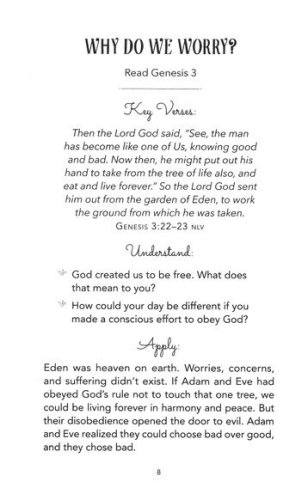 WHY DO WE WORRY?
Read Genesis 3
Key Verses:
Then the Lord God said, "See, the man
has become like one of Us, knowing good
and bad. Now then, he might put out his
hand to take from the tree of life also, and
eat and live forever." So the Lord God sent
him out from the garden of Eden, to work
the ground from which he was taken.
GENESIS 3:22–23 NLV
Understand:
God created us to be free. What does
that mean to you?
How could your day be different if you
made a conscious effort to obey God?
Apply:
Eden was heaven on earth. Worries, concerns,
and suffering didn't exist. If Adam and Eve had
obeyed God's rule not to touch that one tree, we
could be living forever in harmony and peace. But
their disobedience opened the door to evil. Adam
and Eve realized they could choose bad over good,
and they chose bad.
8